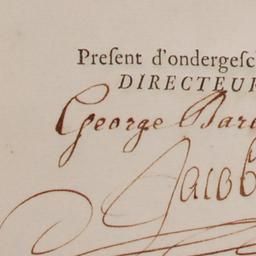 Preſent d'ondergeſch
DIRECTEUR
George Bar
Jacob